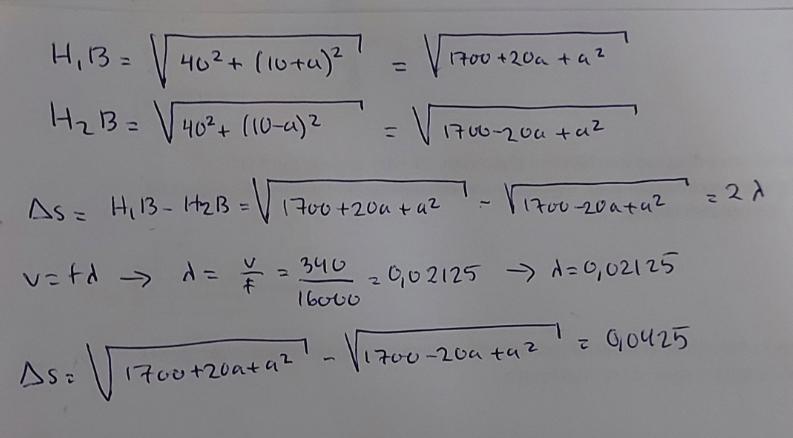 H₁B = √(40² + (10+a)²) = √(1700 + 20a + a²)
H₂B = √(40² + (10-a)²) = √(1700 - 20a + a²)
Δs = H₁B - H₂B = √(1700 + 20a + a²) - √(1700 - 20a + a²) = 2λ
v = fλ → λ = v/f = 340/16000 = 0,02125 → λ = 0,02125
Δs = √(1700 + 20a + a²) - √(1700 - 20a + a²) = 0,0425